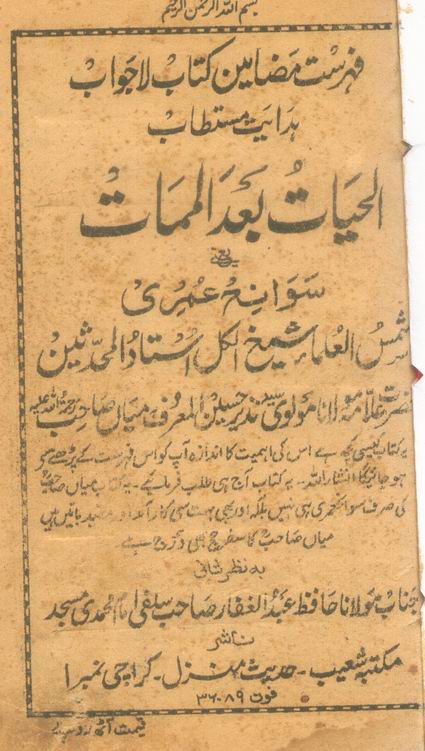 بسم اللہ الرحمن الرحیم
فہرست مضامین کتاب لاجواب
ہدایت مستطاب
الحیات بعد الممات
یعنے
سوانح عمری
شمس العلماء شیخ الکل استاد المحدثین
حضرت علامہ مولانا مولوی سید نذیر حسین المعروف میاں صاحب رحمۃ اللہ علیہ
یہ کتاب کیسی کچھ ہے اس کی اہمیت کا اندازہ آپ کو اس فہرست کے پڑھنے سے
ہو جائیگا انشاء اللہ۔ یہ کتاب آج ہی طلب فرمائیے۔ یہ کتاب میاں صاحب
کی صرف سوانحعمری ہی نہیں بلکہ اور بھی بہت سی کارآمد اور مفید باتیں ہیں
میاں صاحب کا سفر حج بھی درج ہے۔
بہ نظر ثانی
جناب مولانا حافظ عبد الغفار صاحب سلفی امام محمدی مسجد
ناشر
مکتبہ شعیب۔ حدیث منزل۔ کراچی نمبر ۱
فون ۳۶۰۸۹
قیمت آٹھ روپے